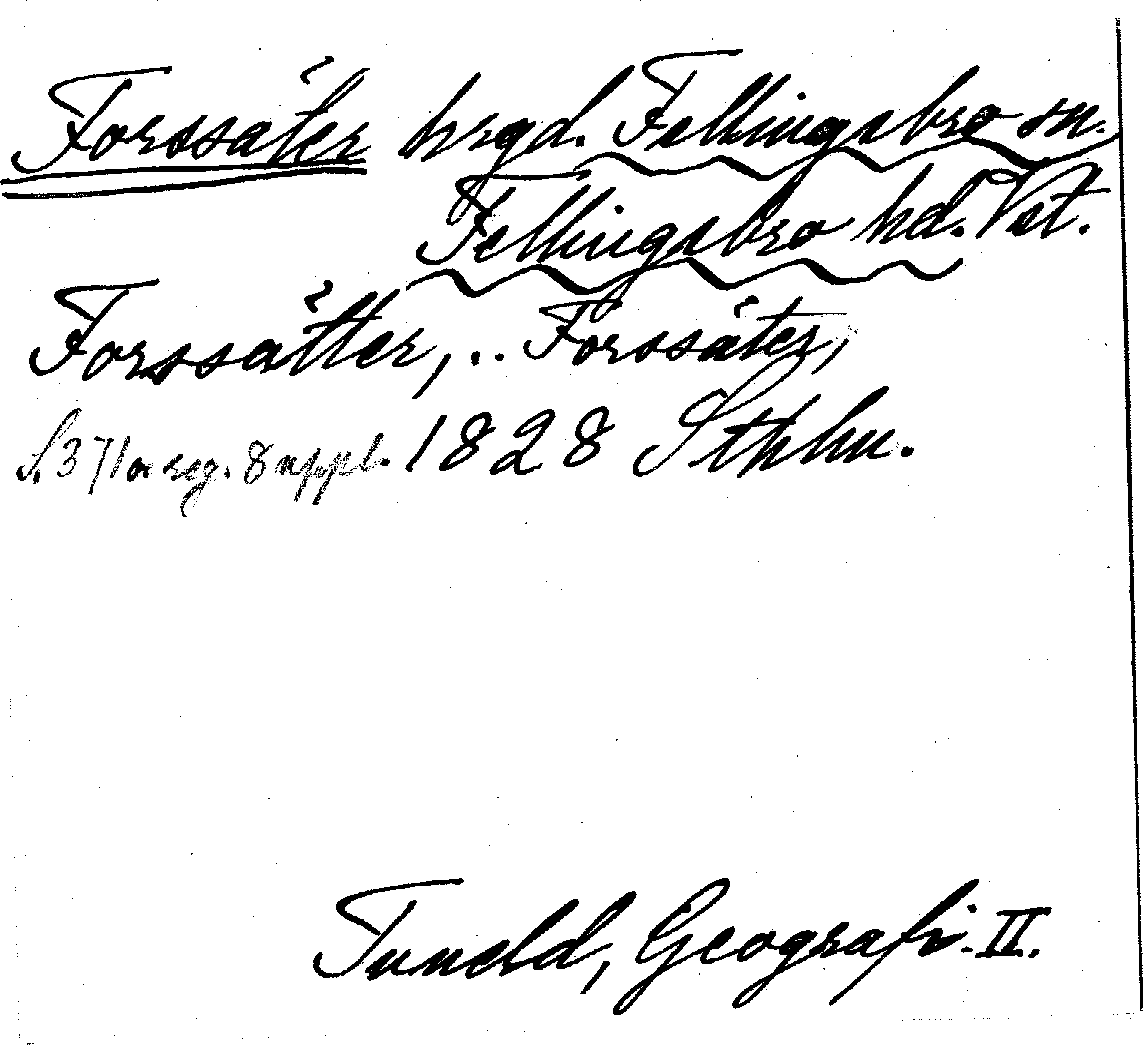 Forssäter hrgd. Fellingsbro sn.
Fellingsbro hd. Vst.
Forssätter, .. Forssäter,
S. 371 o. reg. 8 uppl. 1828 Sthlm.
Tuneld, Geografi. II.